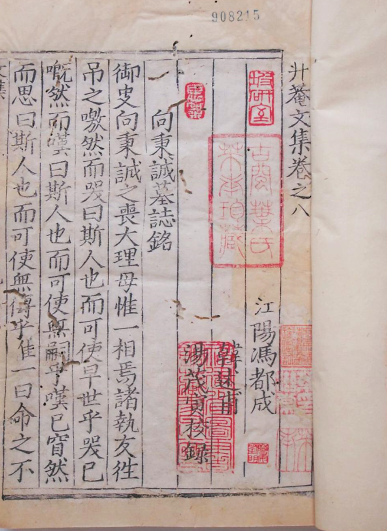 908215
升菴文集卷之八
江陽馮都成
湯茂貢校錄
向秉誠墓誌銘
御史向秉誠之喪大理毋惟一相焉諸執友徃
吊之噭然而哭曰斯人也而可使早世乎哭已
嘅然而嘆曰斯人也而可使無嗣乎嘆已窅然
而思曰斯人也而可使無傳乎惟一曰命之不